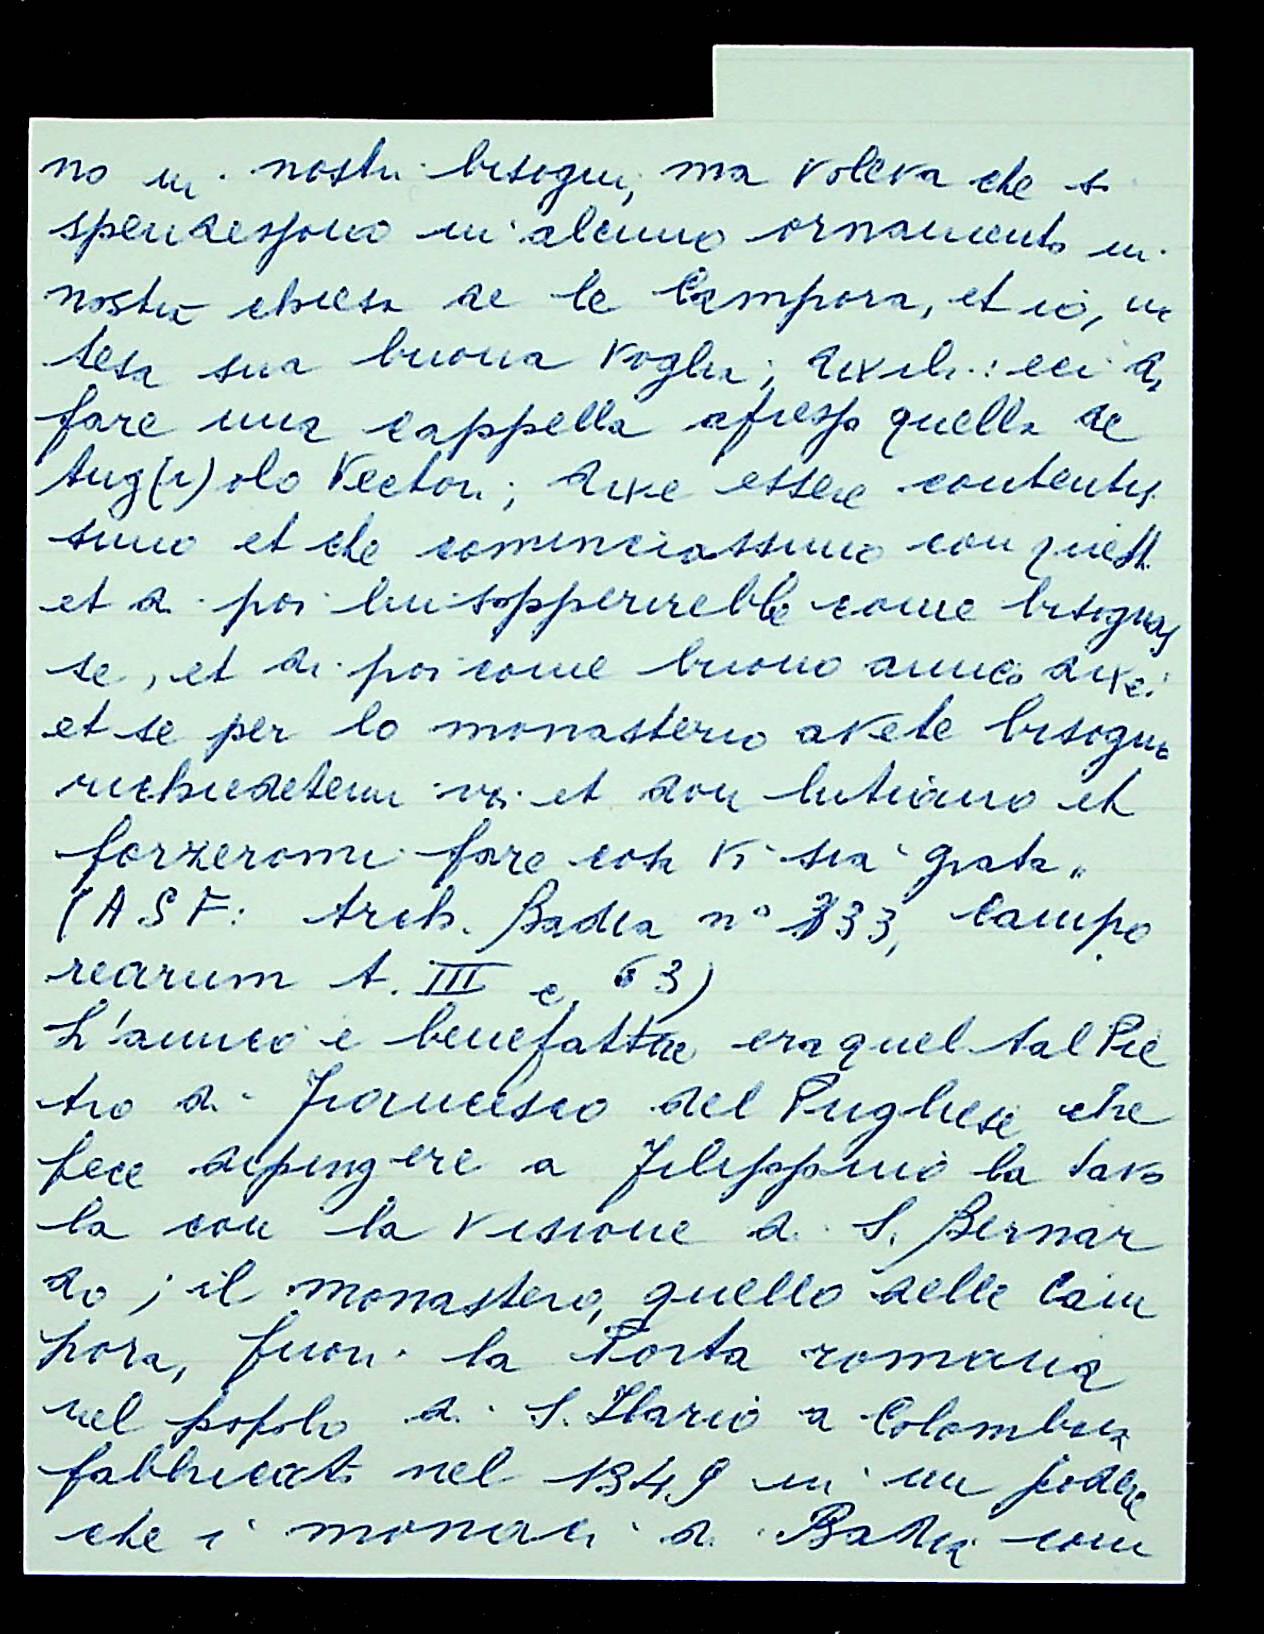 no in nostri bisogni, ma voleva che si
spendessono in alcuno ornamento in
nostra chiesa de le Campora, et io, in
tesa sua buona voglia, dixili: ecci da
fare una cappella apresso quella de
Ang(i)olo Vectori; dixe essere contentis
simo et che cominciassimo con questi
et di poi lui sopperirebbe come bisognas
se, et di poi come buono amico dixe:
et se per lo monasterio avete bisogno
richiedetemi voi et don Lutiano et
forzeromi fare cosa vi sia grata"
(ASF: Arch. Badia n° 333, Campo
rearum t. III c. 63)
L'amico e benefattore era quel tal Pie
tro di Francesco del Pugliese che
fece dipingere a Filippino la tavo
la con la visione di S. Bernar
do; il monastero, quello delle Cam
pora, fuori la Porta romana
nel popolo di S. Ilario a Colombaia
fabbricato nel 1349 in un podere
che i monaci di Badia com